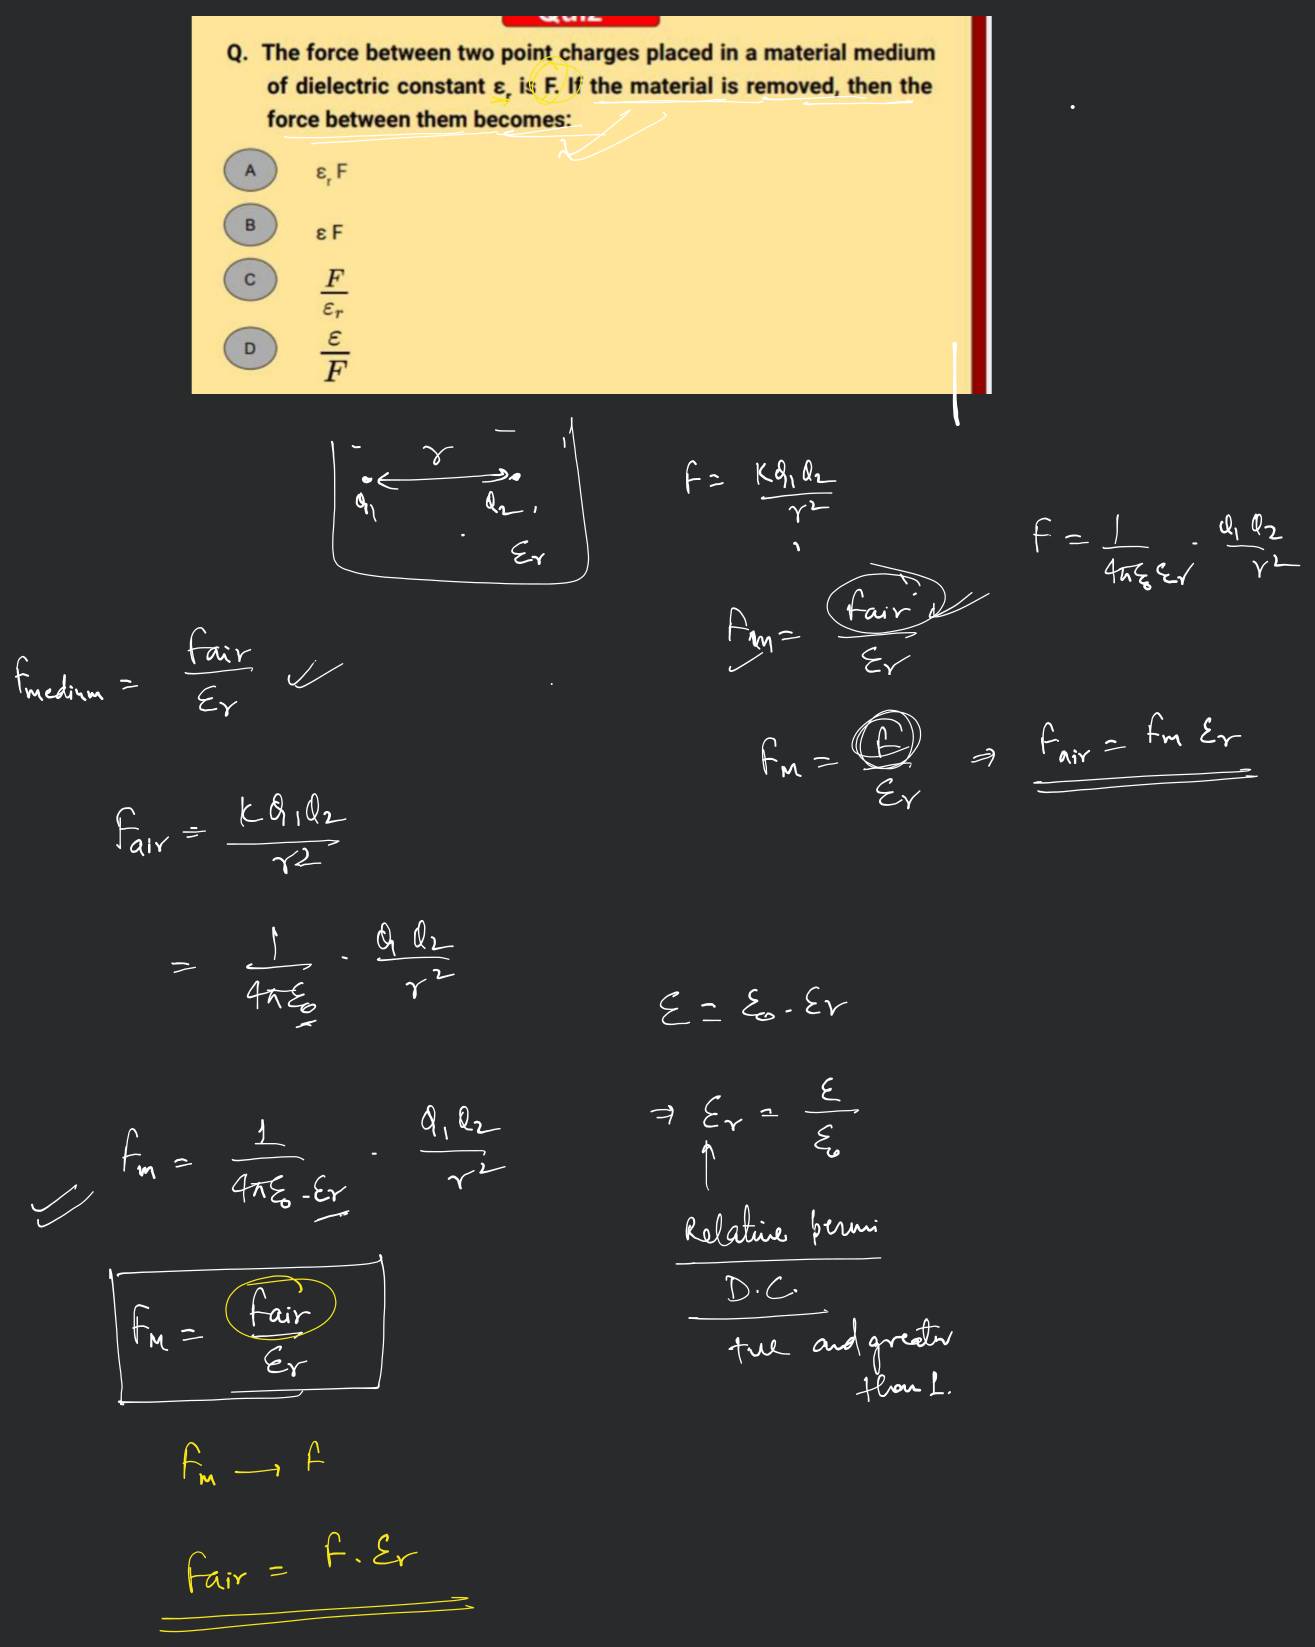 Quiz
Q. The force between two point charges placed in a material medium
of dielectric constant εr is F. If the material is removed, then the
force between them becomes:
A εr F
B ε F
C F/εr
D ε/F
r
Q1 Q2
εr
F = KQ1Q2/r²
F = 1/4πε0εr · Q1Q2/r²
Fm = Fair/εr
Fmedium = Fair/εr
FM = F/εr ⇒ Fair = Fm εr
Fair = KQ1Q2/r2
= 1/4πε0 · Q1Q2/r²
ε = ε0 · εr
Fm = 1/4πε0 · εr · Q1Q2/r²
⇒ εr = ε/ε0
Relative permi
D.C.
+ve and greater
than 1.
FM = Fair/εr
Fm → F
Fair = F. εr